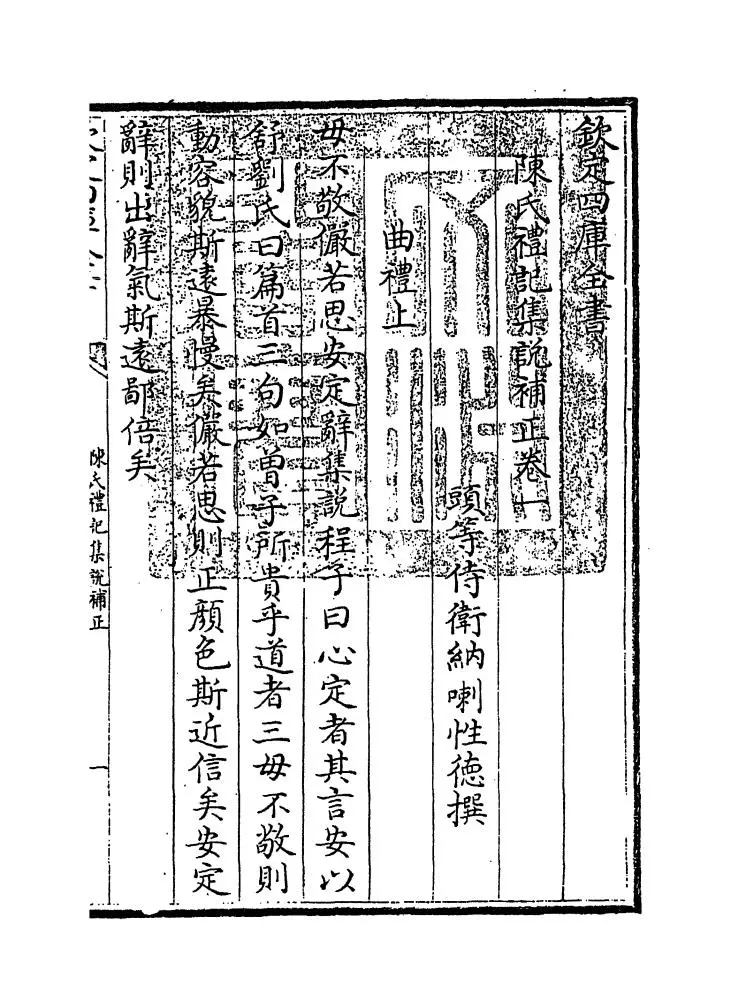 欽定四庫全書
陳氏禮記集說補正卷一
頭等侍衛納喇性德撰
曲禮上
毋不敬儼若思安定辭集說程子曰心定者其言安以
舒劉氏曰篇首三句如曾子所貴乎道者三毋不敬則
動容貌斯遠暴慢矣儼若思則正顏色斯近信矣安定
辭則出辭氣斯遠鄙倍矣
陳氏禮記集說補正
一